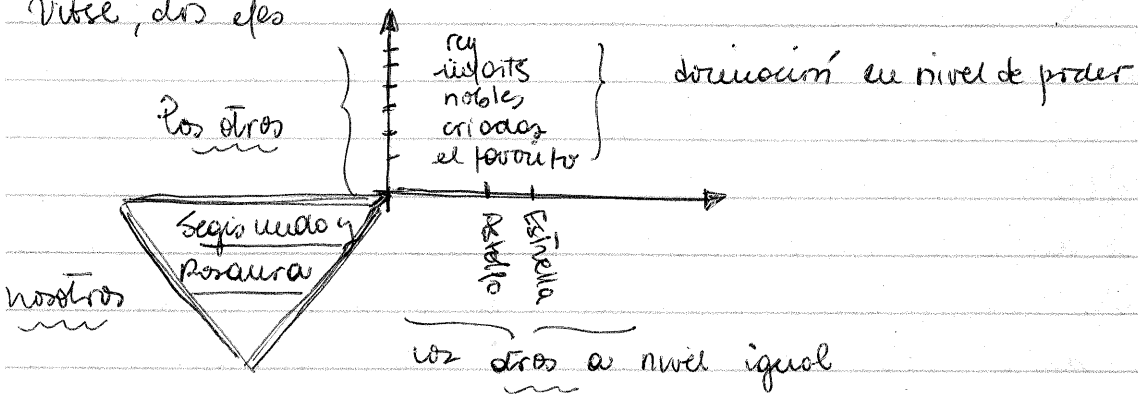 Vitse, dos ejes
rey
infants
nobles
criados
el favorito
dominación en nivel de poder
los otros
Segismundo y
Rosaura
nosotros
Astolfo
Estrella
los otros a nivel igual